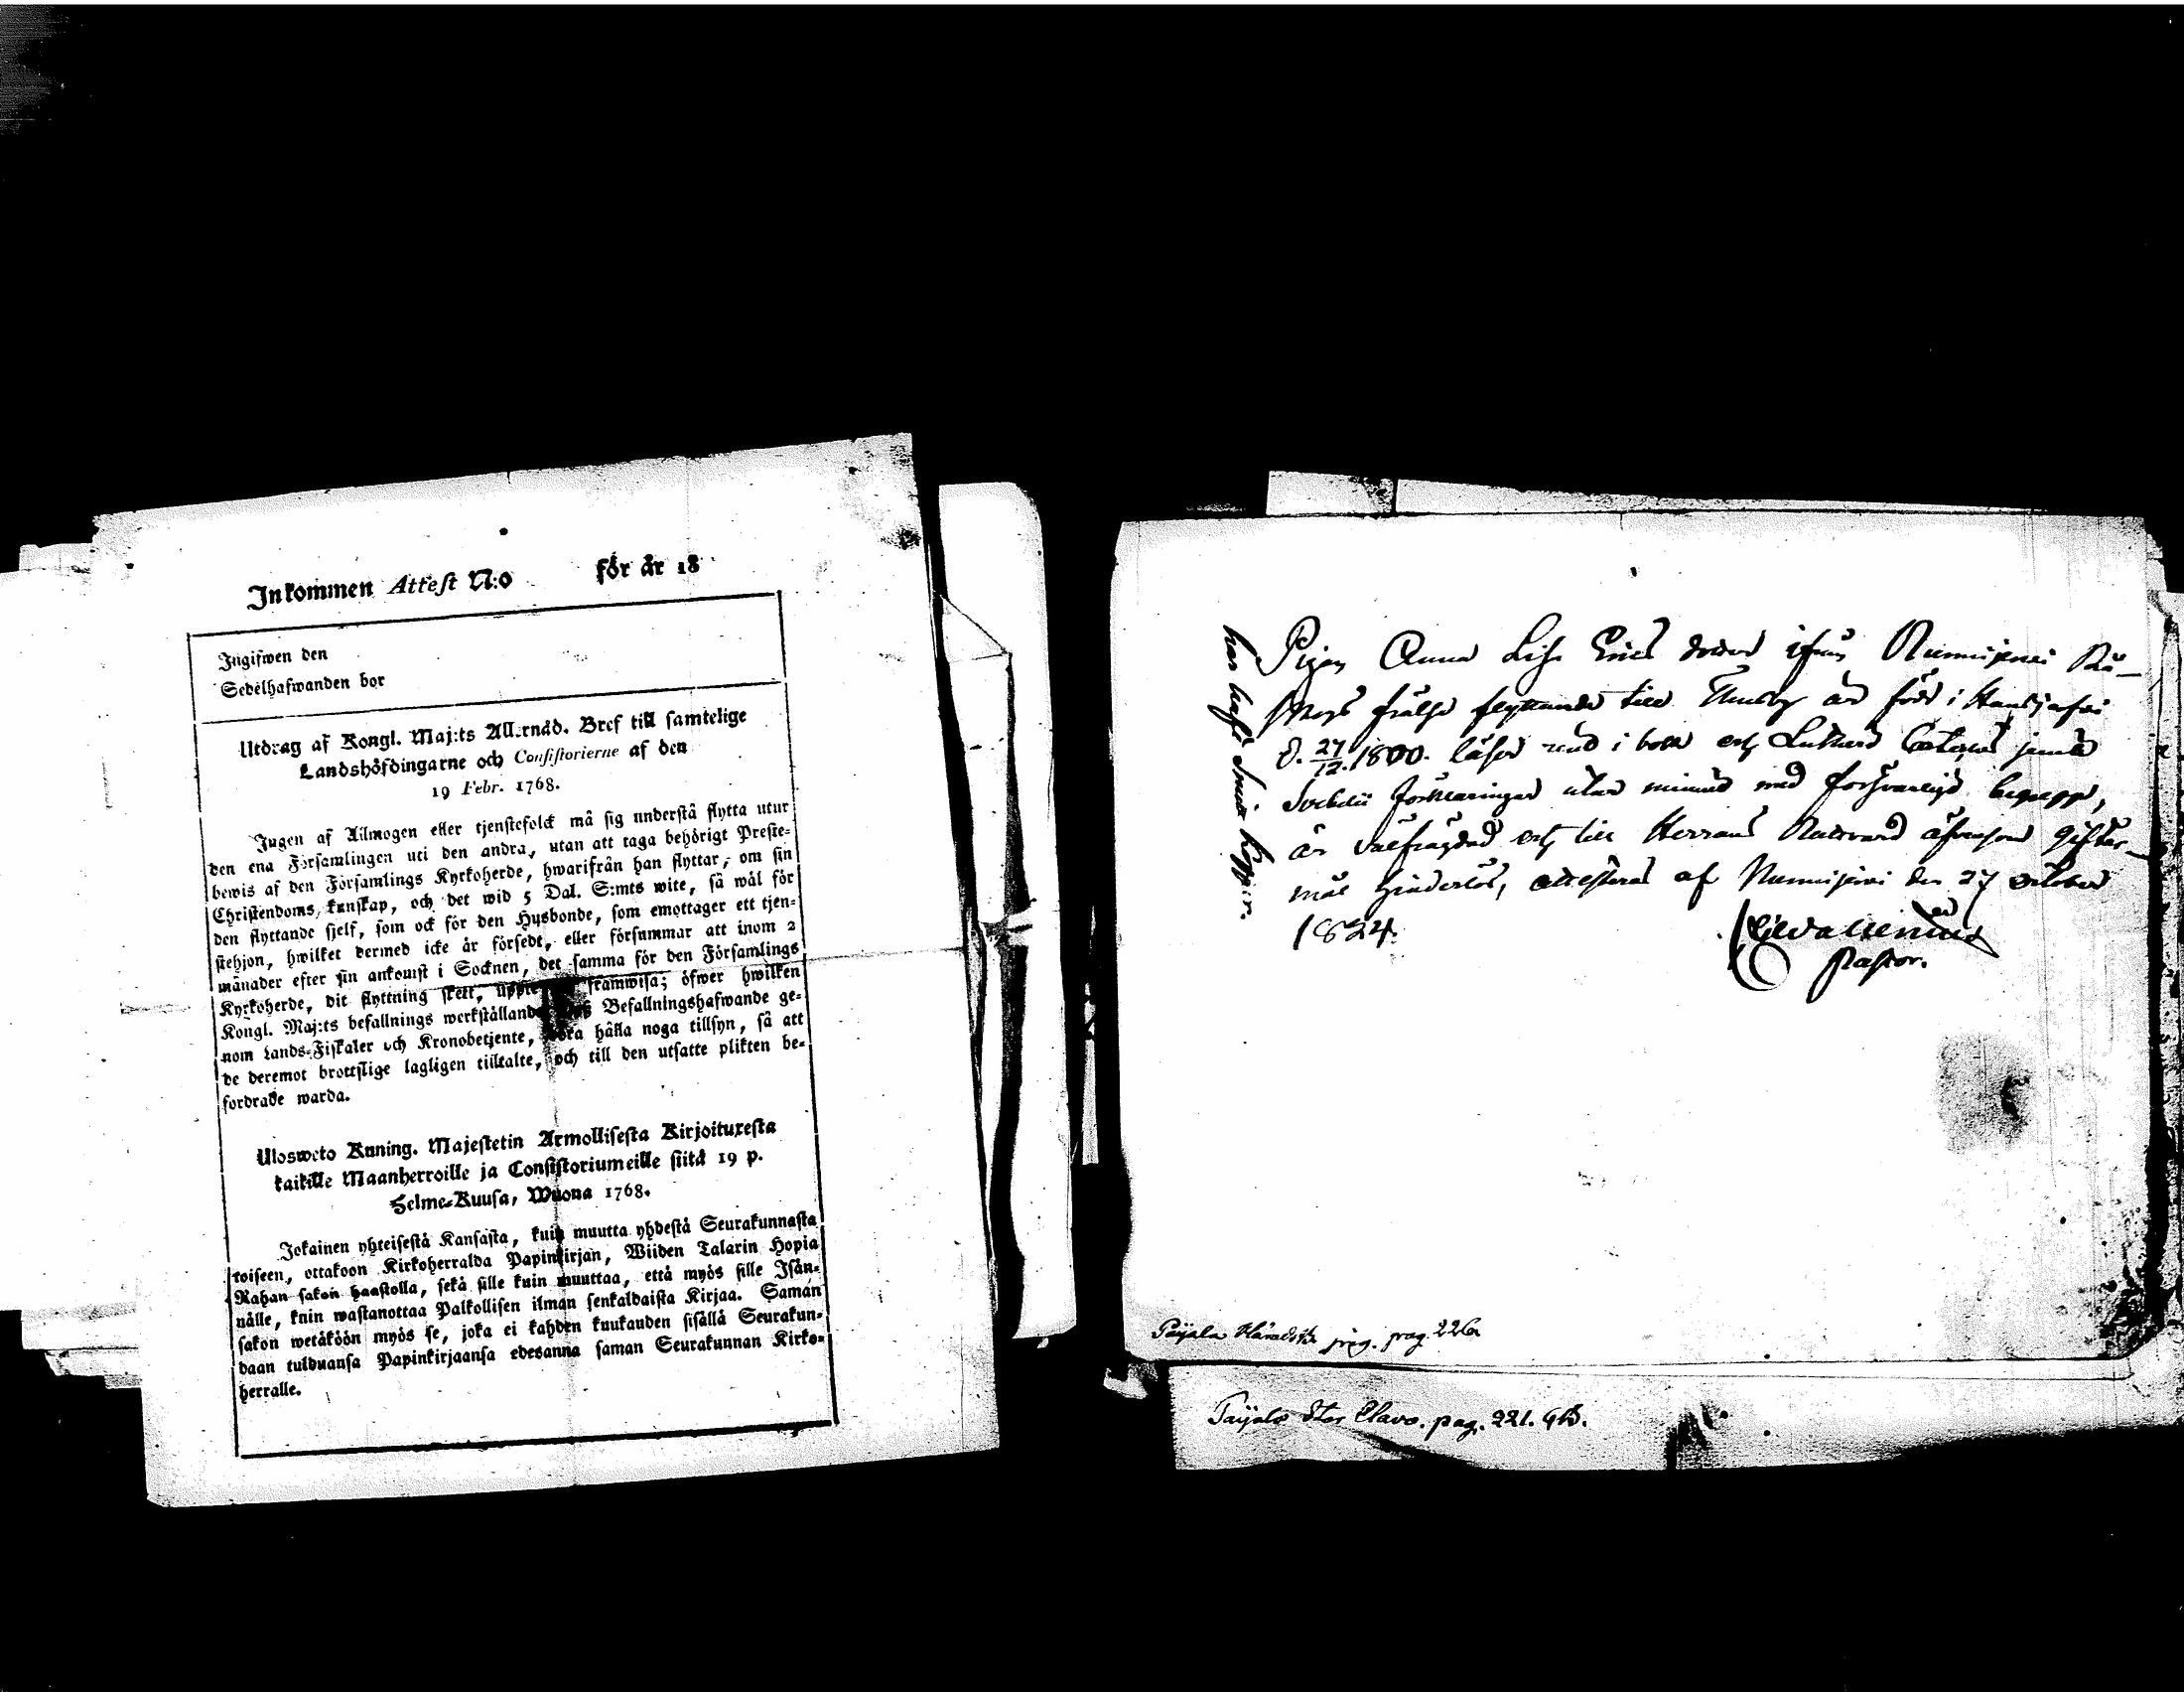 Inkommen Attest N:o för år 18
Ingifwen den
Sedelhafwanden bor
Utdrag af Kongl. Maj:ts Allernåd. Bref till samtelige
Landshöfdingarne och Consistorierne af den
19 Febr. 1768.
Ingen af Allmogen eller tjenstefolck må sig understå flytta utur
den ena Församlingen uti den andra, utan att taga behörigt Preste-
bewis af den Församlings Kyrkoherde, hwarifrån han flyttar, om sin
Christendoms kunskap, och det wid 5 Dal. S:mts wite, så wål för
den flyttande sjelf, som ock för den Husbonde, som emottager ett tjen-
stehjon, hwilket dermed icke år försedt, eller försummar att inom 2
månader efter sin ankomst i Socknen, det samma för den Församlings
Kyrkoherde, dit flyttning skett, framwisa; öfwer hwilken
Kongl. Maj:ts befallnings werkställande Befallningshafwande ge-
nom Lands-Fiskaler och Kronobetjente, hålla noga tillsyn, så att
de deremot brottslige lagligen tilltalte, och till den utsatte plikten be-
fordrade warda.
Ulosweto Kuning. Majestetin Armollisesta Kirjoituxesta
kaikille Maanherroille ja Consistoriumeille siitå 19 p.
Helme-Kuusa, Wuona 1768.
Jokainen yhteisestå Kansasta, kuin muutta yhdestå Seurakunnasta
toiseen, ottakoon Kirkoherralda Papinkirjan, Wiiden Talarin Hopia
Rahan sakon haastolla, sekå sille kuin muuttaa, ettå myös sille Isån-
nålle, kuin wastanottaa Palkollisen ilman senkaldaista Kirjaa. Saman
sakon wetåköön myös se, joka ei kahden kuukauden sisållå Seurakun-
daan tulduansa Papinkirjaansa edesanna saman Seurakunnan Kirko-
herralle.
Pigan Anna Lisa Ericsdoter ifrån Nummijervi
frälse flyttande till är född i
d. 27/12. 1800. läser i bok och Lutheri Cateches jemte
Svebelii förklaringar utan minnes med försvarligt begrepp,
är välfrägdad och till Herrans Nattvard äfvensom gifter-
mål hinderlös, attesteras af Nummijervi den 27 october
1824.
Pastor.
har haft Koppor.
Päijälä pag. 226
Päijälä Stor Olavs. pag. 221.